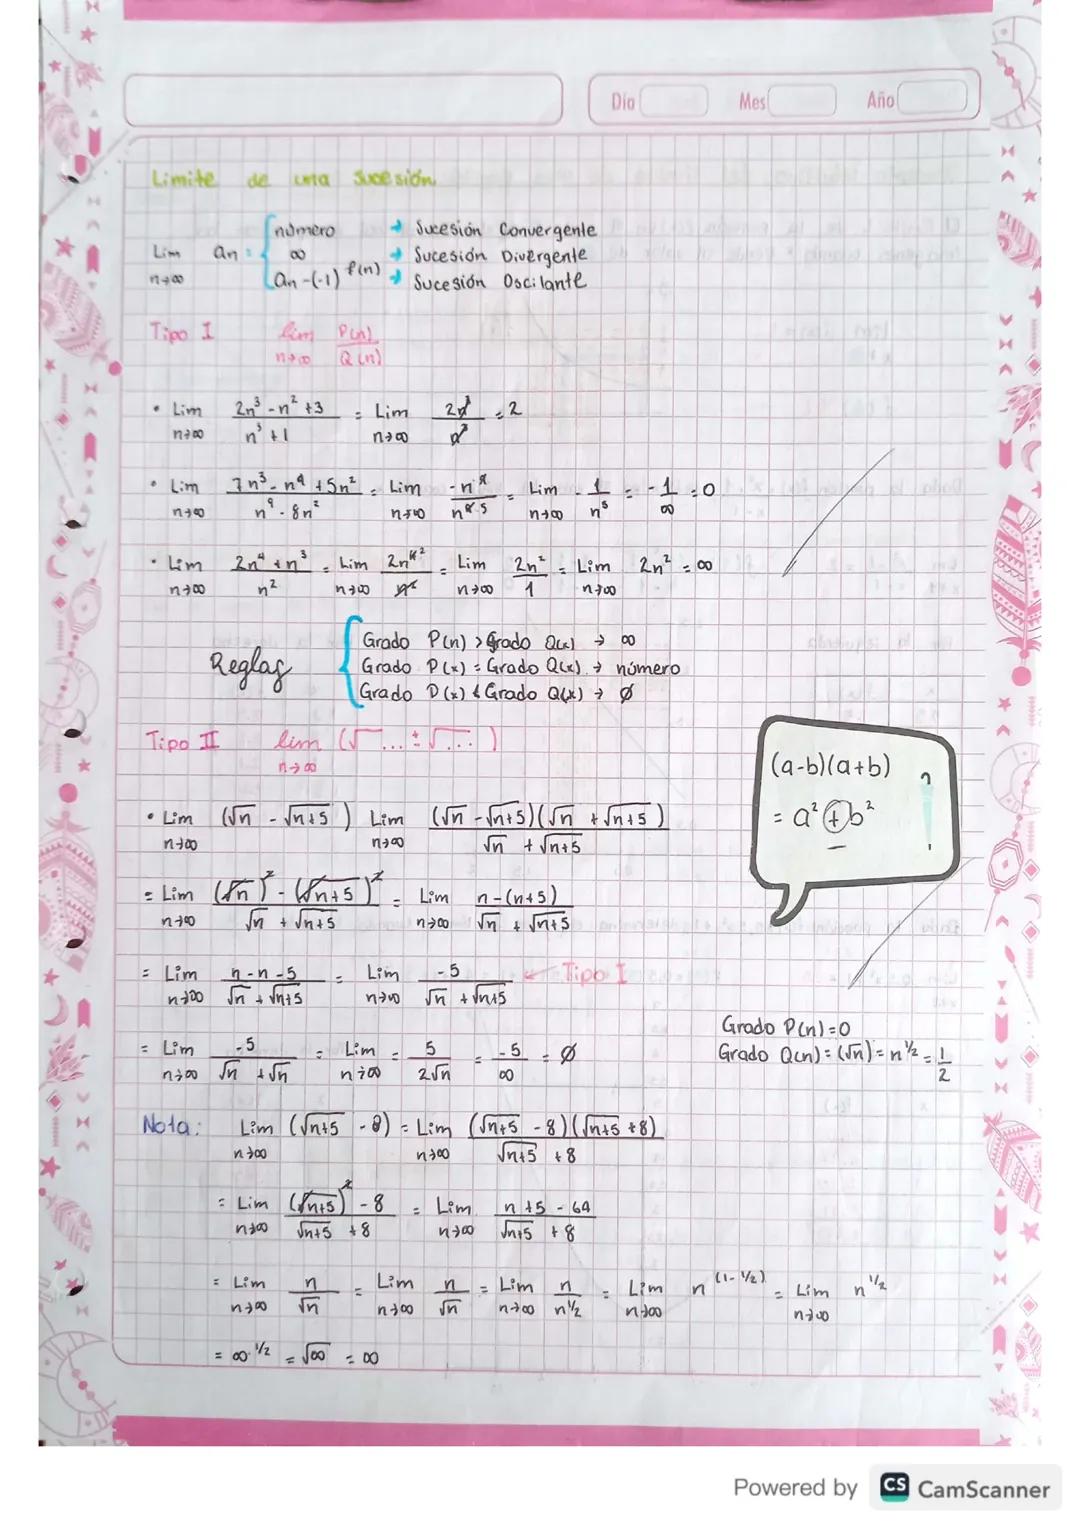 Día Mes Año
Limite de una sucesión.
Lim n→∞ an = { número → Sucesión Convergente
∞ → Sucesión Divergente
an -(-1) f(n) → Sucesión Oscilante
Tipo I lim n→∞ P(n)/Q(n)
• Lim n→∞ (2n³ - n² + 3)/(n³ + 1) = Lim n→∞ 2n³/n³ = 2
• Lim n→∞ (7n³ - n⁴ + 5n²)/(n⁹ - 8n²) = Lim n→∞ -n⁴/n⁹ ⁵ = Lim n→∞ - 1/n⁵ = - 1/∞ = 0
• Lim n→∞ (2n⁴ + n³)/n² = Lim n→∞ 2n⁴ ²/n² = Lim n→∞ 2n²/1 = Lim n→∞ 2n² = ∞
Reglas { Grado P(n) > Grado Q(x) → ∞
Grado P(x) = Grado Q(x) → número
Grado P(x) < Grado Q(x) → ∅
Tipo II lim n→∞ (√... ± √...)
(a-b)(a+b)
= a² + b²
–
• Lim n→∞ (√n - √n+5) Lim n→∞ (√n - √n+5)(√n + √n+5)/(√n + √n+5)
= Lim n→∞ ((√n)² - (√n+5)²)/(√n + √n+5) = Lim n→∞ (n-(n+5))/(√n + √n+5)
= Lim n→∞ (n-n-5)/(√n + √n+5) = Lim n→∞ -5/(√n + √n+5) ← Tipo I
= Lim n→∞ -5/(√n + √n) = Lim n→∞ = 5/(2√n) = -5/∞ = ∅
Grado P(n)=0
Grado Q(n)=(√n)= n½ = 1/2
Nota: Lim n→∞ (√n+5 - 8) = Lim n→∞ (√n+5 - 8)(√n+5 + 8)/(√n+5 + 8)
= Lim n→∞ ((√n+5)² - 8)/(√n+5 + 8) = Lim n→∞ (n + 5 - 64)/(√n+5 + 8)
= Lim n→∞ n/√n = Lim n→∞ n/√n = Lim n→∞ n/n½ = Lim n→∞ n (1-½) = Lim n→∞ n ½
= ∞ ½ = √∞ = ∞
Powered by CS CamScanner